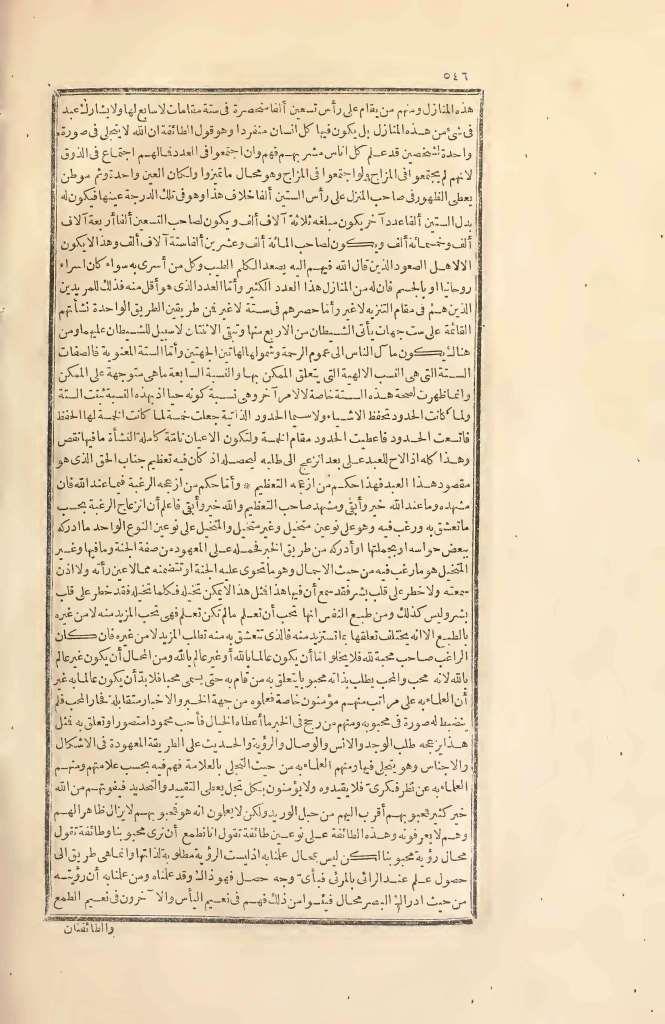 ٥٤٦
هذه المنازل ومنهم من يقام على رأس تسعين ألفا منحصرة فى ستة مقامات لا سابع لها ولا يشارك عبد
فى شئ من هذه المنازل بل يكون فيها كل انسان منفردا وهو قول الطائفة ان الله لا يتجلى فى صورة
واحدة لشخصين قد علم كل اناس مشربهم فهم وان اجتمعوا فى العدد فما لهم اجتماع فى الذوق
لانهم لم يجتمعوا فى المزاج ولو اجتمعوا فى المزاج وهو محال ما تميزوا ولكان العين واحدة وثم موطن
يعطى الظهور فى صاحب المنزل على رأس الستين ألفا خلاف هذا وهو فى تلك الدرجة عينها فيكون له
بدل الستين ألفا عدد آخر يكون مبلغه ثلاثة آلاف ألف ويكون لصاحب التسعين ألفا أربعة آلاف
ألف وخمسمائة ألف ويكون لصاحب المائة ألف وعشرين ألفا ستة آلاف ألف وهذا لا يكون
الا لاهل الصعود الذين قال الله فيهم اليه يصعد الكلم الطيب وكل من أسرى به سواء كان اسراء
روحانيا او بالجسم فان له من المنازل هذا العدد الكثير وأما العدد الذى هو أقل منه فذلك للمريدين
الذين هم فى مقام التنزيه لا غير وأما حصرهم فى ستة لا غير فمن طريقين الطريق الواحدة نشأتهم
القائمة على ست جهات يأتى الشيطان من الاربع منها وتبقى الاثنتان لا سبيل للشيطان عليهما ومن
هنالك يكون مآل الناس الى عموم الرحمة وشمولها لهاتين الجهتين وأما الستة المعنوية فالصفات
الستة التى هى النسب الالهية التى يتعلق الممكن بها والنسبة السابعة ما هى متوجهة على الممكن
وانما ظهرت لصحة هذه الستة خاصة لا لامر آخر وهى نسبة كونه حيا اذ بهذه النسبة ثبتت الستة
ولما كانت الحدود تحفظ الاشياء ولا سيما الحدود الذاتية جعلت خمسة لما كانت الخمسة لها الحفظ
فاتسعت الحدود فأعطيت الحدود مقام الخمسة ولتكون الاعيان تامّة كاملة النشأة ما فيها نقص
وهذا كله اذ الاح للعبد على بعد انزعج الى طلبه ليحصله اذ كان فيه تعظيم جناب الحق الذى هو
مقصود هذا العبد فهذا حكم من ازعجه التعظيم * وأما حكم من ازعجه الرغبة فيما عند الله فان
مشهده وما عند الله خير وأبقى ومشهد صاحب التعظيم والله خير وأبقى فاعلم أن انزعاج الرغبة بحسب
ما تعشق به ورغب فيه وهو على نوعين متخيل وغير متخيل والمتخيل على نوعين النوع الواحد ما ادركه
ببعض حواسه او بجملتها او أدركه من طريق الخبر فحمله على المعهود من صفة الجنة وما فيها وغير
المتخيل هو ما رغب فيه من حيث الاجمال وهو ما تحوى عليه الجنة او تتضمنه مما لا عين رأته ولا اذن
سمعته ولا خطر على قلب بشر فقد سمع أن فيها هذا فمثل هذا لا يمكن تخيله فكلما تخيله فقد خطر على قلب
بشر وليس كذلك ومن طبع النفس انها تحب أن تعلم مالم تكن تعلم فهى تحب المزيد منه لا من غيره
بالطبع الا انه يختلف تعلقها بما تستزيد منه فالذى تتعشق به منه تطلب المزيد لا من غيره فان كان
الراغب صاحب محبة لله فلا يخلو امّا أن يكون عالما بالله أو غير عالم بالله ومن المحال أن يكون غير عالم
بالله لانه محب والمحب يطلب بذاته محبوبا يتعلق به من قام به حتى يسمى محبا فلا بدّ أن يكون عالما به غير
أن العلماء به على مراتب منهم مؤمنون خاصة فعلموه من جهة الخبر والاخبار متقابلة فحار المحب فلم
ينضبط له صورة فى محبوبه ومنهم من رجح فى الخبر ما أعطاه الخيال فأحب محمودا متصورا وتعلق به فمثل
هذا يزعجه طلب الوجد والانس والوصال والرؤية والحديث على الطريقة المعهودة فى الاشكال
والاجناس وهو يتجلى فيها ومنهم العلماء به من حيث التجلى بالعلامة فهم فيه بحسب علامتهم ومنهم
العلماء به عن نظر فكرى فلا يقيدوه ولا يؤمنون بكل تجل يعطى التقييد والتحديد فيفوتهم من الله
خير كثير فمحبوبهم أقرب اليهم من حبل الوريد ولكن لا يعلمون انه هو فمحبوبهم لا يزال ظاهرا لهم
وهم لا يعرفونه وهذه الطائفة على نوعين طائفة تقول انا نطمع أن نرى محبوبنا وطائفة تقول
محال رؤية محبوبنا لكن ليس بمحال علمنا به اذ ليست الرؤية مطلوبة لذاتها وانما هى طريق الى
حصول علم عند الرائى بالمرئى فبأىّ وجه حصل فهو ذاك وقد علمناه ومن علمنا به أن رؤيته
من حيث ادراك البصر محال فيئسوا من ذلك فهم فى نعيم اليأس والآخرون فى نعيم الطمع
والطائفتان